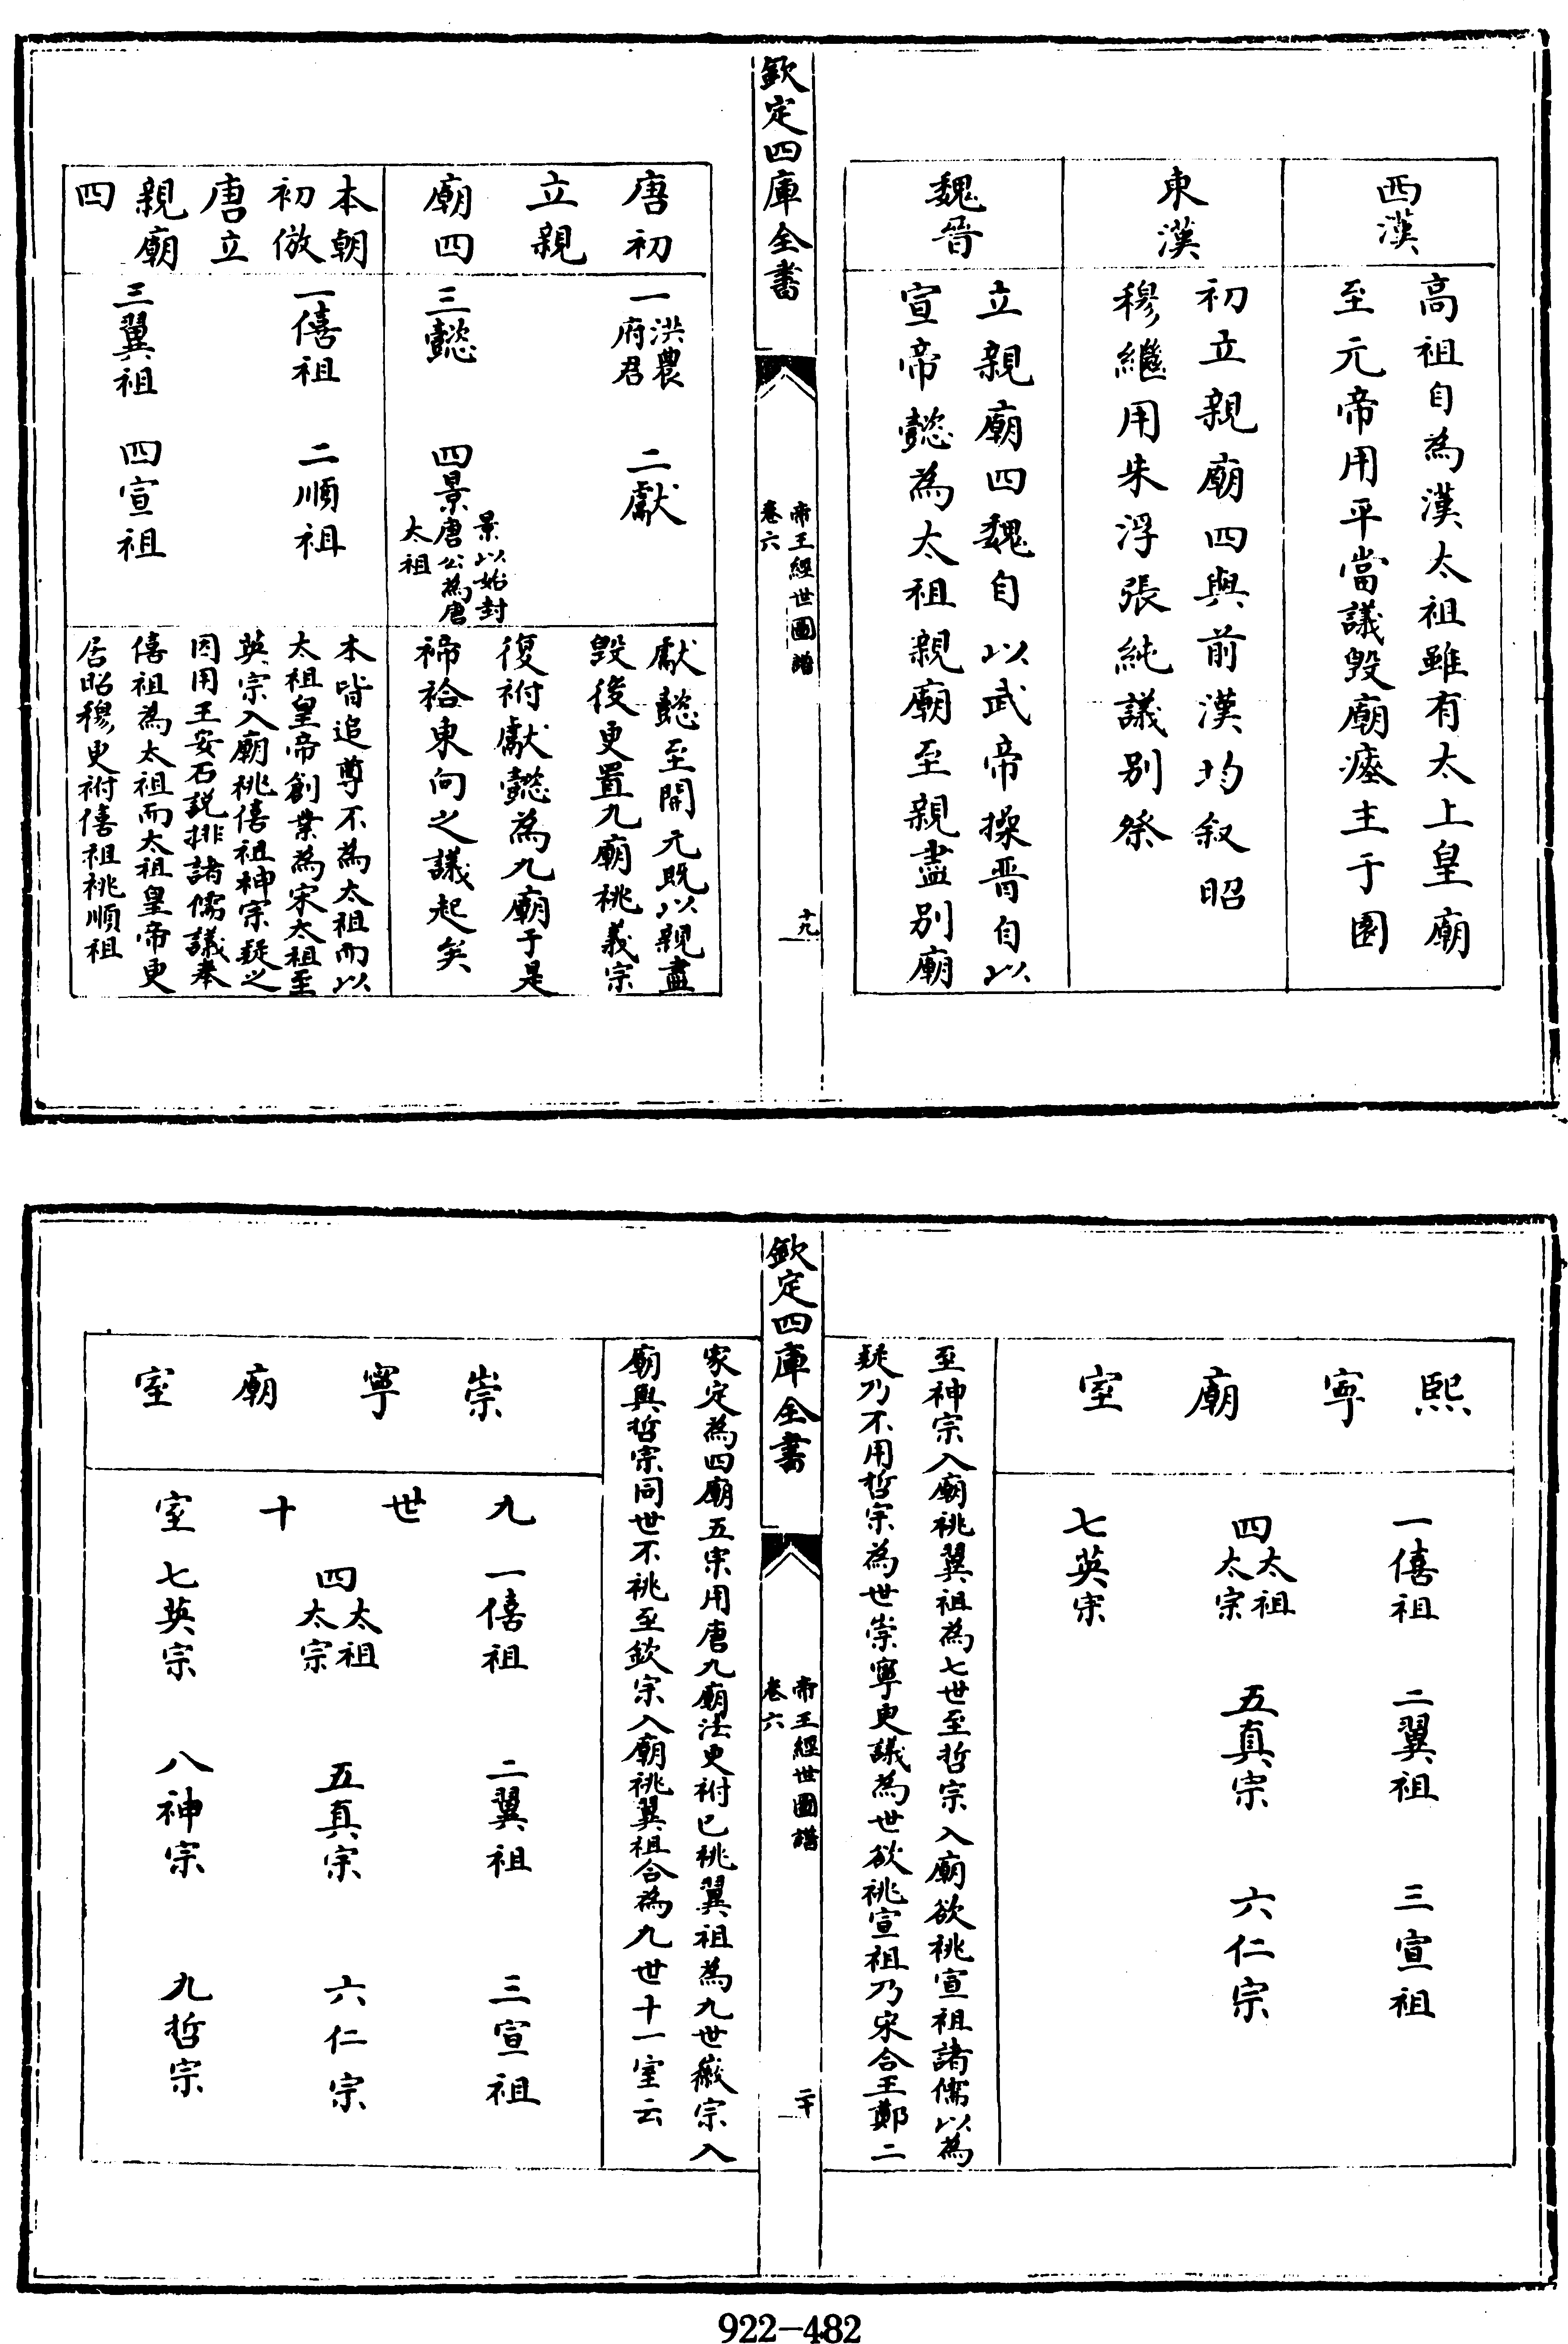 西漢
高祖自為漢太祖雖有太上皇廟
至元帝用平當議毀廟瘞主于園
東漢
初立親廟四與前漢均叙昭
穆繼用朱浮張純議别祭
魏晉
立親廟四魏自以武帝操晋自以
宣帝懿為太祖親廟至親盡别廟
欽定四庫全書
帝王經世圖譜
卷六
十九
唐初
立親
廟四
一洪農
府君
二獻
三懿
四景
景以始封
唐公為唐
太祖
獻懿至開元既以親盡
毀後更置九廟祧義宗
復祔獻懿為九廟于是
禘祫東向之議起矣
本朝
初倣
唐立
親廟
四
一僖祖
二順祖
三翼祖
四宣祖
本皆追尊不為太祖而以
太祖皇帝創業為宋太祖至
英宗入廟祧僖祖神宗疑之
因用王安石説排諸儒議奉
僖祖為太祖而太祖皇帝更
居昭穆更祔僖祖祧順祖
熙寧廟室
一僖祖
二翼祖
三宣祖
四太祖
太宗
五真宗
六仁宗
七英宗
至神宗入廟祧翼祖為七世至哲宗入廟欲祧宣祖諸儒以為
疑乃不用哲宗為世崇寧更議為世欲祧宣祖乃宋合王鄭二
欽定四庫全書
帝王經世圖譜
卷六
二十
家定為四廟五宗用唐九廟法更祔已祧翼祖為九世徽宗入
廟與哲宗同世不祧至欽宗入廟祧翼祖合為九世十一室云
崇寧廟室
九世十室
一僖祖
二翼祖
三宣祖
四太祖
太宗
五真宗
六仁宗
七英宗
八神宗
九哲宗
922-482